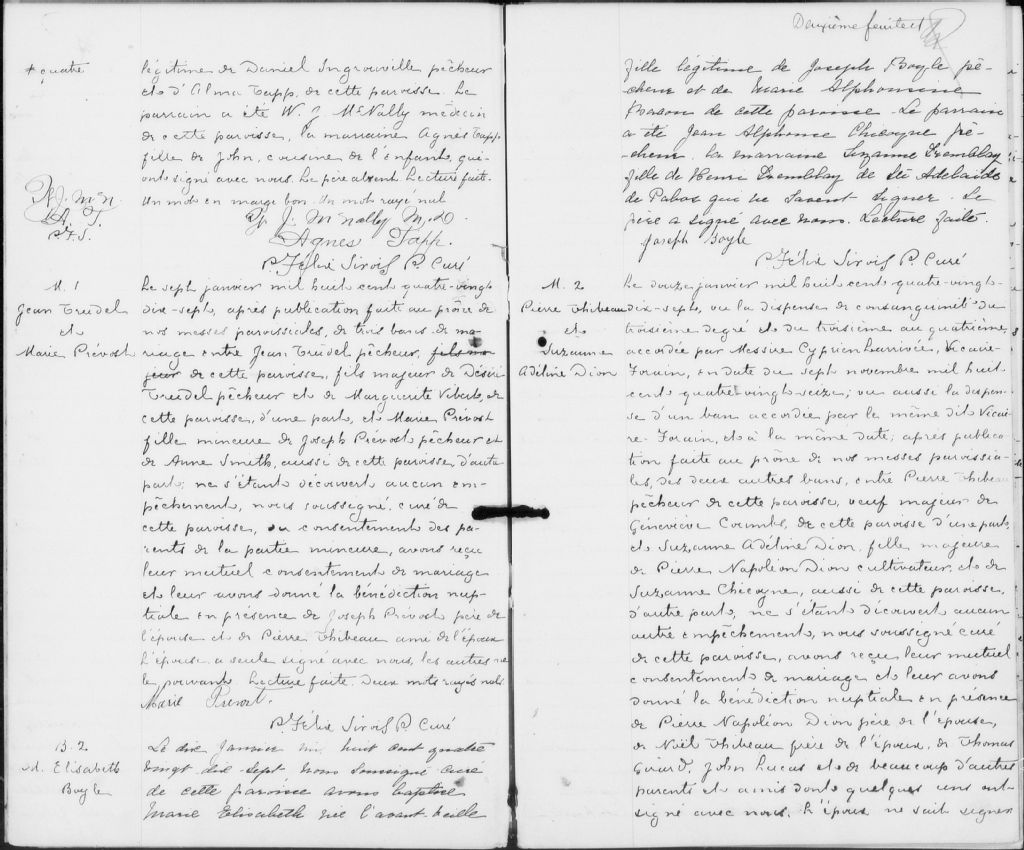 + quatre
légitime de Daniel Ingrouville pêcheur
et d'Alma Tapp, de cette paroisse. Le
parrain a été W. J. McNally médecin
de cette paroisse, la marraine Agnès Tapp
fille de John, cousine de l'enfant, qui
ont signé avec nous. Le père absent. Lecture faite.
Un mot en marge bon. Un mot rayé nul
W. J. McN.
A. T.
P. F. S.
W. J. McNally M. D.
Agnes Tapp.
P. Félix Sirois P. Curé
M. 1
Jean Trudel
et
Marie Prévost
Le sept janvier mil huit cent quatre-vingt
dix-sept, après publication faite au prône de
nos messes paroissiales, de trois bans de ma-
riage entre Jean Trudel pêcheur, fils ma
jeur de cette paroisse, fils majeur de Désiré
Trudel pêcheur et de Marguerite Vibert, de
cette paroisse, d'une part, et Marie Prévost
fille mineure de Joseph Prévost pêcheur et
de Anne Smith, aussi de cette paroisse, d'autre
part; ne s'étant découvert aucun em-
pêchement, nous soussigné, curé de
cette paroisse, du consentement des pa-
rents de la partie mineure, avons reçu
leur mutuel consentement de mariage
et leur avons donné la bénédiction nup-
tiale en présence de Joseph Prévost père de
l'épouse et de Pierre Thibeau ami de l'époux
L'épouse a seule signé avec nous, les autres ne
le pouvant. Lecture faite. Deux mots rayés nuls
Marie Prevost.
P. Félix Sirois P. Curé
B. 2
M. Elisabeth
Boyle
Le dix Janvier mil huit cent quatre
vingt dix-sept nous soussigné curé
de cette paroisse avons baptisé
Marie Elisabeth née l'avant-veille
Deuxième feuillet
fille légitime de Joseph Boyle pê-
cheur et de Marie Alphonsine
de cette paroisse. Le parrain
a été Jean Alphonse Chicoyne pê-
-cheur. la marraine Suzanne Tremblay
fille de Henri Tremblay de Ste Adelaide
de Pabos qui ne savent signer. Le
père a signé avec nous. Lecture faite.
Joseph Boyle
P. Félix Sirois P. Curé
M. 2
Pierre Thibeau
et
Suzanne
Adéline Dion
Le douze janvier mil huit cent quatre-vingt-
dix-sept, vu la dispense de consanguinité du
troisième degré et du troisième au quatrième,
accordée par Messire Cyprien Larrivée, Vicaire-
Forain, en date du sept novembre mil huit
cent quatre-vingt seize; vu aussi la dispen-
se d'un ban accordée par le même dit Vicai-
re-Forain, et à la même date; après publica
tion faite au prône de nos messes paroissia-
les, des deux autres bans, entre Pierre Thibeau
pêcheur de cette paroisse, veuf majeur de
Geneviève Coumbs, de cette paroisse d'une part,
et Suzanne Adéline Dion, fille majeure
de Pierre Napoléon Dion cultivateur, et de
Suzanne Chicoyne, aussi de cette paroisse,
d'autre part, ne s'étant découvert aucun
autre empêchement, nous soussigné curé
de cette paroisse, avons reçu leur mutuel
consentement de mariage et leur avons
donné la bénédiction nuptiale en présence
de Pierre Napoléon Dion père de l'épouse,
de Noël Thibeau frère de l'époux, de Thomas
Girard, John Lucas et de beaucoup d'autres
parents et amis dont quelques uns ont
signé avec nous. L'époux ne sait signer